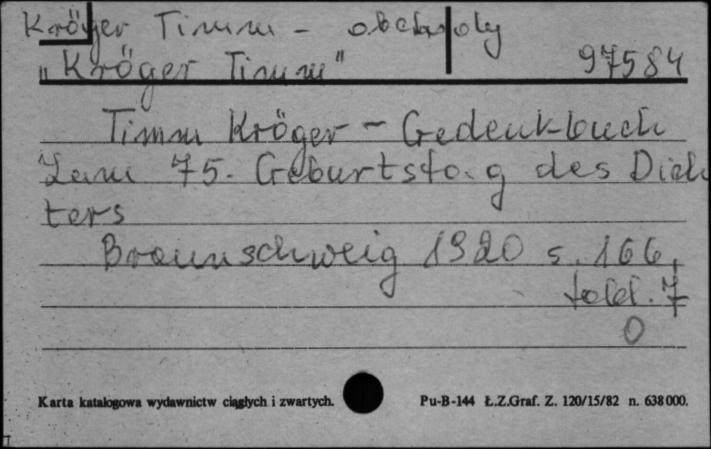 Kröger Timm - obchody
"Kröger Timm" 97584
Timm Kröger - Gedenkbuch
Zum 75. Geburtstag des Dich
ters
Braunschweig 1920 s. 166,
tabl. 7
0
Karta katalogowa wydawnictw ciągłych i zwartych.
Pu-B-144 Ł.Z.Graf. Z. 120/15/82 n. 638000.